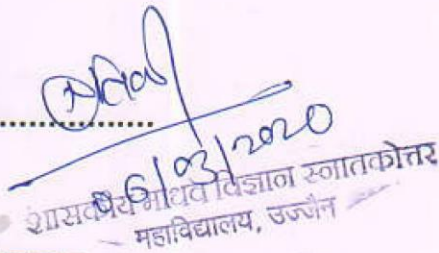 06/03/2020
शासकीय माधव विज्ञान स्नातकोत्तर
महाविद्यालय, उज्जैन